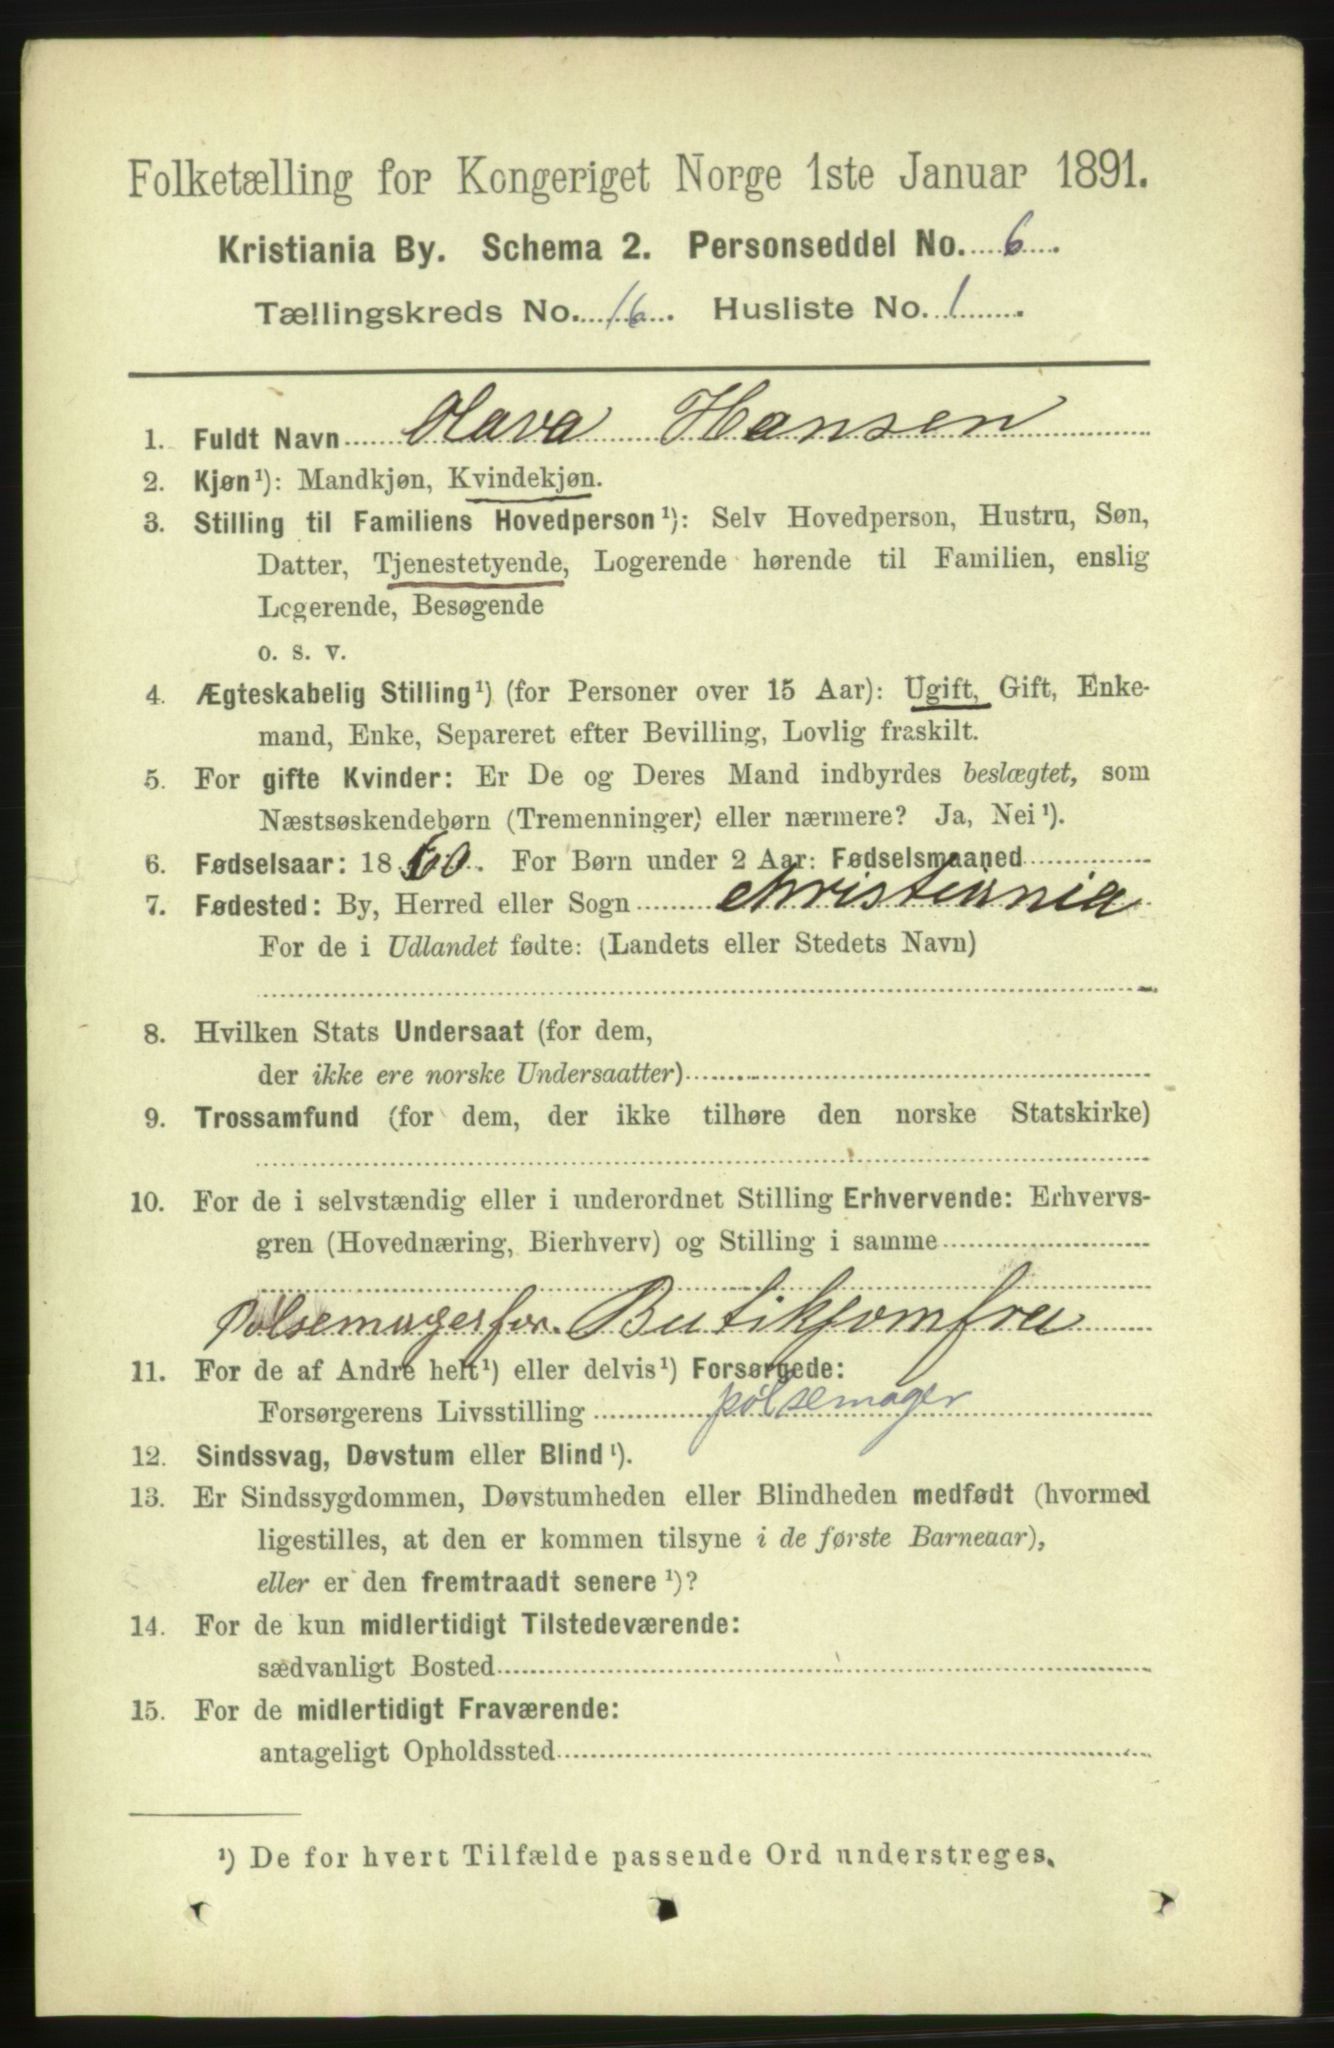 Folketælling for Kongeriget Norge 1ste Januar 1891.
Kristiania By. Schema 2. Personseddel No. 6.
Tællingskreds No. 16. Husliste No. 1.
1. Fuldt Navn Olava Hansen
2. Kjøn¹): Mandkjøn, Kvindekjøn.
3. Stilling til Familiens Hovedperson¹): Selv Hovedperson, Hustru, Søn,
Datter, Tjenestetyende, Logerende hørende til Familien, enslig
Logerende, Besøgende
o. s. v.
4. Ægteskabelig Stilling¹) (for Personer over 15 Aar): Ugift, Gift, Enke-
mand, Enke, Separeret efter Bevilling, Lovlig fraskilt.
5. For gifte Kvinder: Er De og Deres Mand indbyrdes beslægtet, som
Næstsøskendebørn (Tremenninger) eller nærmere? Ja, Nei¹).
6. Fødselsaar: 1860. For Børn under 2 Aar: Fødselsmaaned
7. Fødested: By, Herred eller Sogn Christiania
For de i Udlandet fødte: (Landets eller Stedets Navn)
8. Hvilken Stats Undersaat (for dem,
der ikke ere norske Undersaatter)
9. Trossamfund (for dem, der ikke tilhøre den norske Statskirke)
10. For de i selvstændig eller i underordnet Stilling Erhvervende: Erhvervs-
gren (Hovednæring, Bierhverv) og Stilling i samme
Pølsemagerfor. Butikjomfru
11. For de af Andre helt¹) eller delvis¹) Forsørgede:
Forsørgerens Livsstilling pølsemager
12. Sindssvag, Døvstum eller Blind¹).
13. Er Sindssygdommen, Døvstumheden eller Blindheden medfødt (hvormed
ligestilles, at den er kommen tilsyne i de første Barneaar),
eller er den fremtraadt senere¹)?
14. For de kun midlertidigt Tilstedeværende:
sædvanligt Bosted
15. For de midlertidigt Fraværende:
antageligt Opholdssted
¹) De for hvert Tilfælde passende Ord understreges.